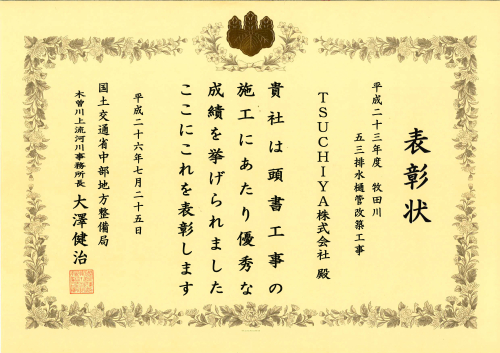 表彰状
平成二十三年度 牧田川
五三排水樋管改築工事
TSUCHIYA株式会社 殿
貴社は頭書工事の
施工にあたり優秀な
成績を挙げられました
ここにこれを表彰します
平成二十六年七月二十五日
国土交通省中部地方整備局
木曽川上流河川事務所長 大澤健治